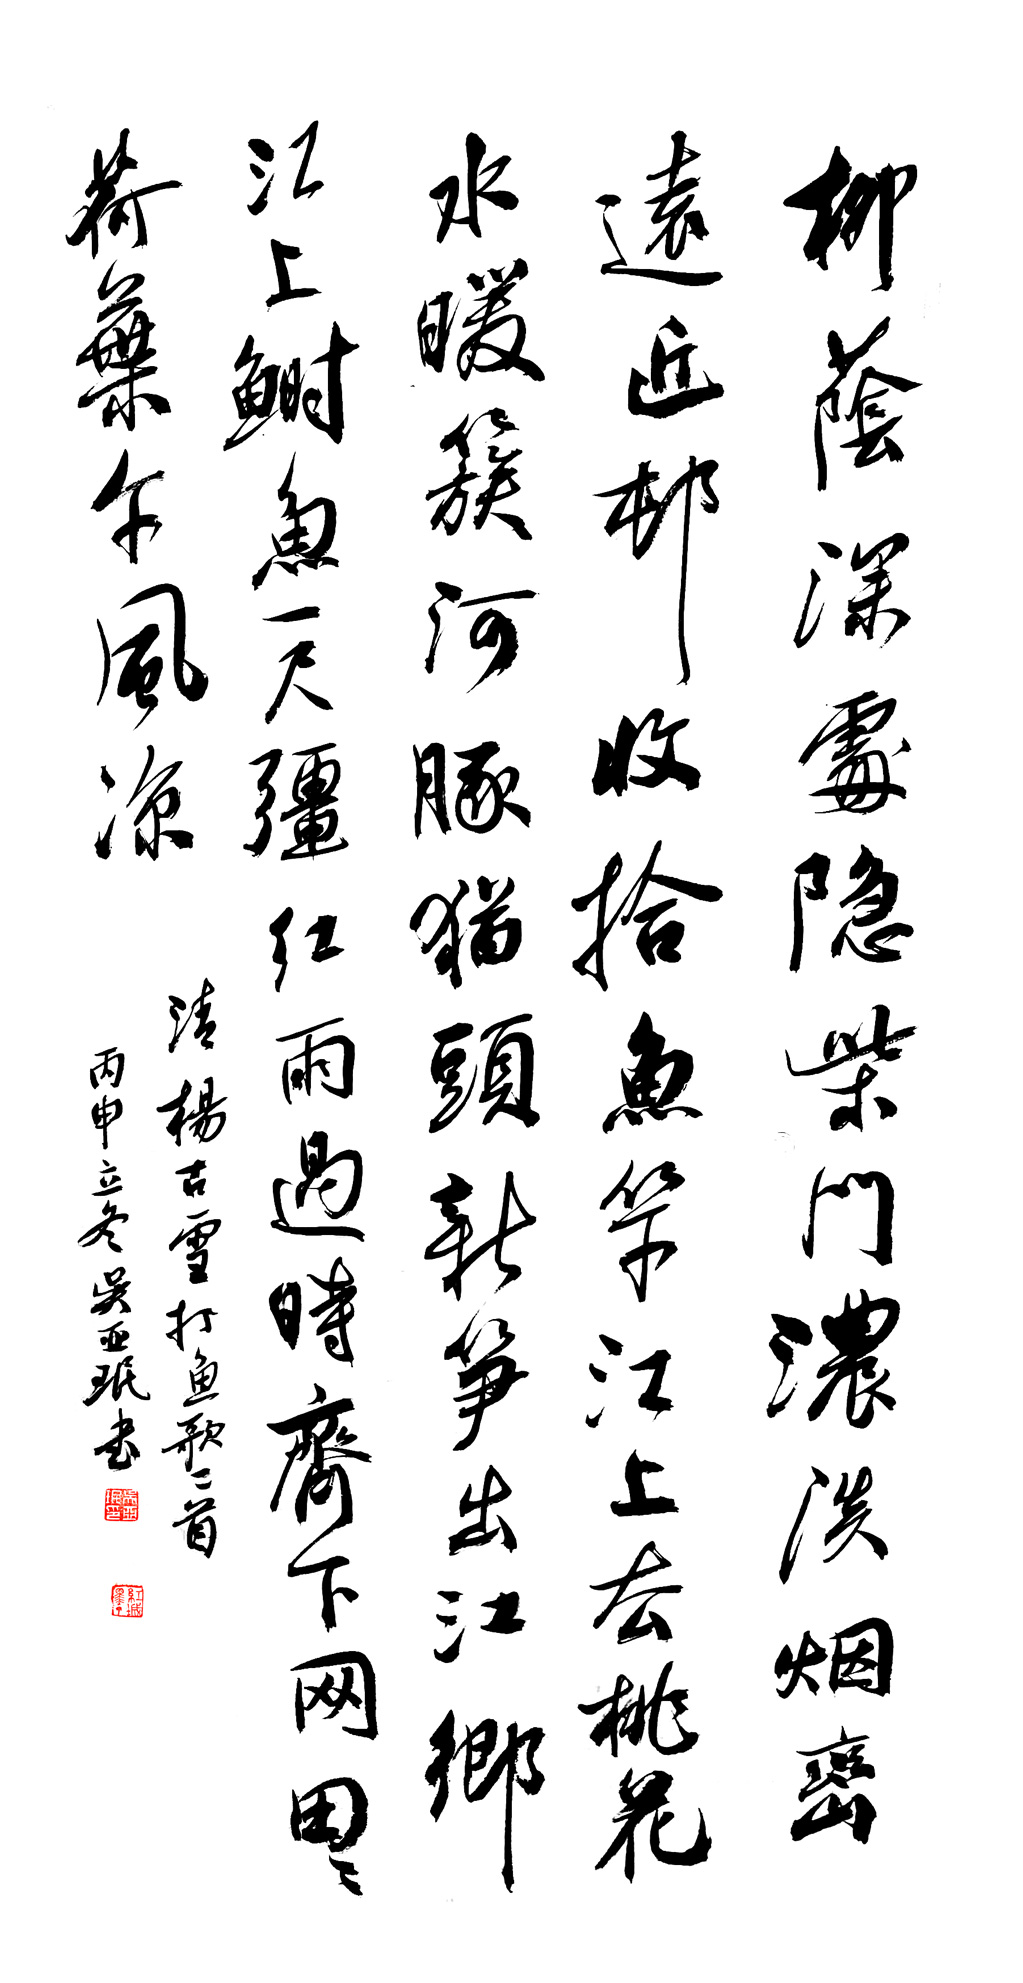 柳蔭深處隐柴門濃淡烟巒
遠近邨收拾魚竿江上去桃花
水暖簇河豚猫頭新笋出江鄉
江上鰣魚一尺彊红雨過時齊下网田田
荷葉午風凉
清楊古雪打魚歌二首
丙申立冬吴亚珉书